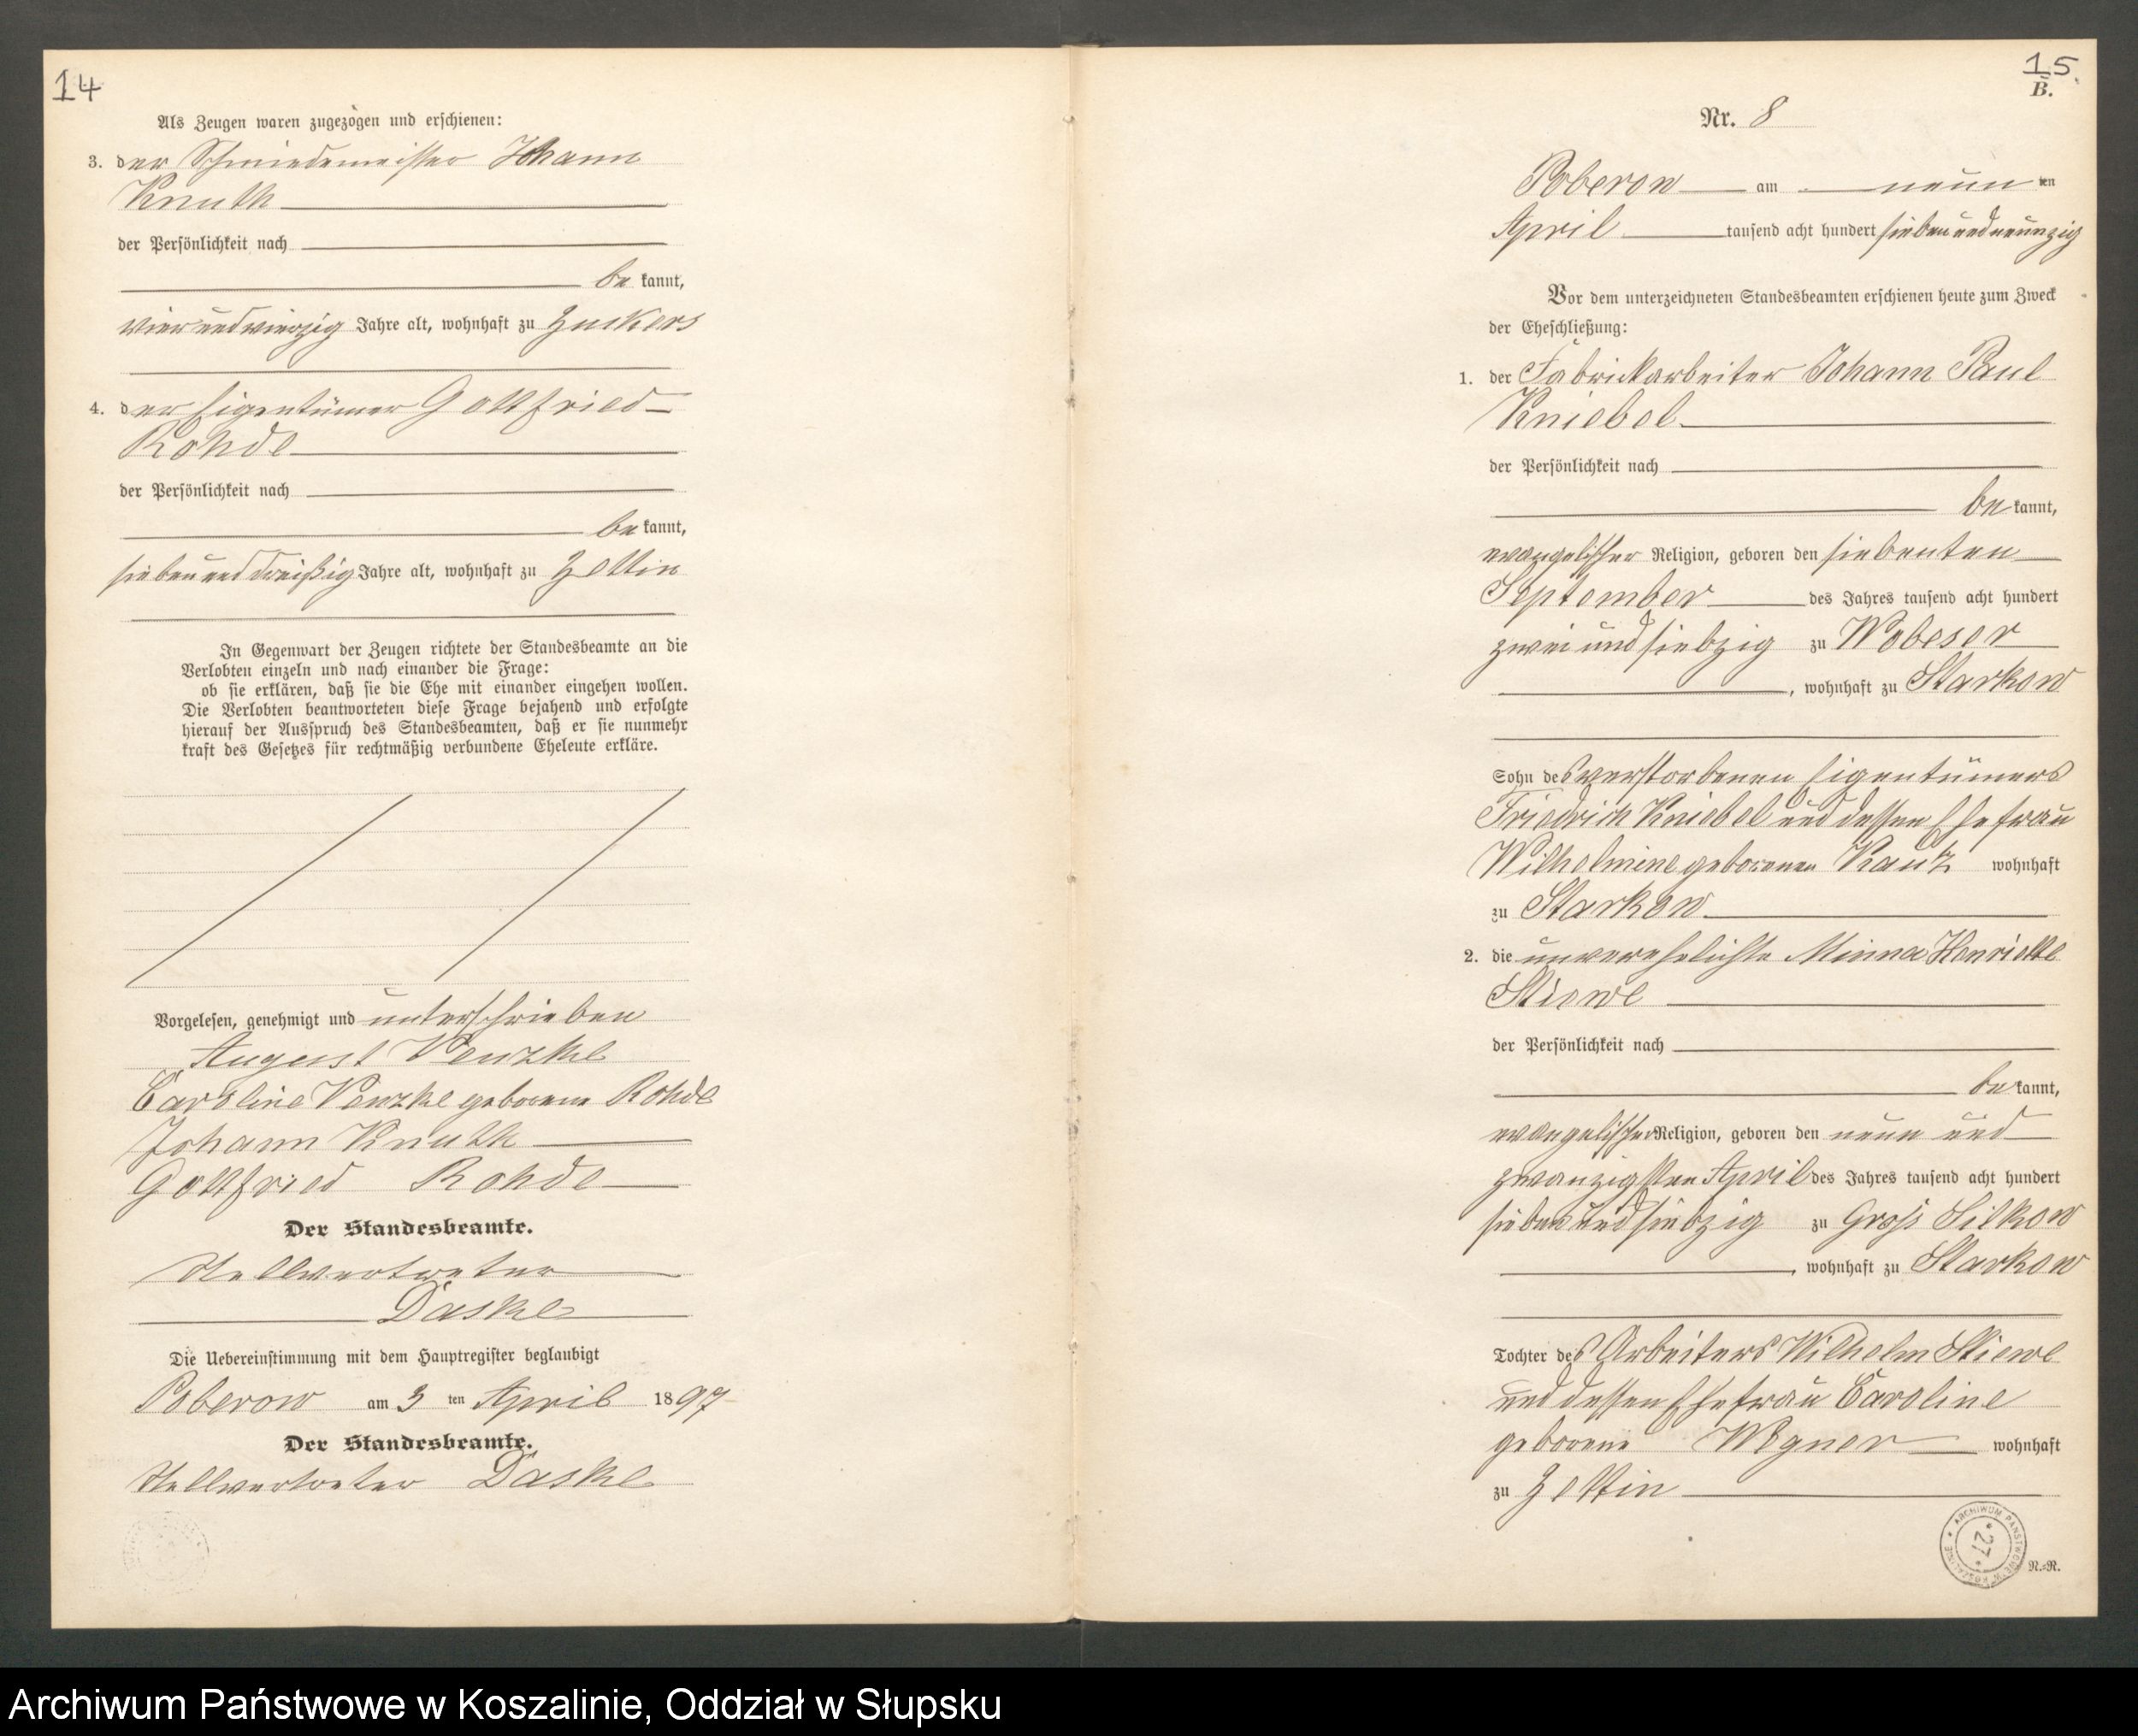 14
Als Zeugen waren zugezogen und erschienen:
3. der Schmiedemeister Johann
Knuth
der Persönlichkeit nach
be kannt,
vier und vierzig Jahre alt, wohnhaft zu Zuckers
4. der Eigentümer Gottfried
Rohde
der Persönlichkeit nach
be kannt,
sieben und dreißig Jahre alt, wohnhaft zu Zettin
In Gegenwart der Zeugen richtete der Standesbeamte an die
Verlobten einzeln und nach einander die Frage:
ob sie erklären, daß sie die Ehe mit einander eingehen wollen.
Die Verlobten beantworteten diese Frage bejahend und erfolgte
hierauf der Ausspruch des Standesbeamten, daß er sie nunmehr
kraft des Gesetzes für rechtmäßig verbundene Eheleute erkläre.
Vorgelesen, genehmigt und unterschrieben
August Venzke
Caroline Venzke geborene Rohde
Johann Knuth
Gottfried Rohde
Der Standesbeamte.
Stellvertreter
Daske
Die Uebereinstimmung mit dem Hauptregister beglaubigt
Poberow am 3 ten April 1897
Der Standesbeamte.
Stellvertreter Daske
15.
B.
Nr. 8
Poberow am neun ten
April tausend acht hundert sieben und neunzig
Vor dem unterzeichneten Standesbeamten erschienen heute zum Zweck
der Eheschließung:
1. der Fabrickarbeiter Johann Paul
Kniebel
der Persönlichkeit nach
be kannt,
evangelischer Religion, geboren den siebenten
September des Jahres tausend acht hundert
zwei und siebzig zu Wobeser
, wohnhaft zu Starkow
Sohn des verstorbenen Eigentümers
Friedrich Kniebel und dessen Ehefrau
Wilhelmine geborenen Kautz wohnhaft
zu Starkow
2. die unverehelichte Minna Henriette
Stiewe
der Persönlichkeit nach
be kannt,
evangelischer Religion, geboren den neun und
zwanzigsten April des Jahres tausend acht hundert
sieben und siebzig zu Groß Silkow
, wohnhaft zu Starkow
Tochter des Arbeiters Wilhelm Stiewe
und dessen Ehefrau Caroline
geborene Wegner wohnhaft
zu Zettin
ARCHIWUM PAŃSTWOWE W KOSZALINIE
* 27 *
N.=R.
Archiwum Państwowe w Koszalinie, Oddział w Słupsku